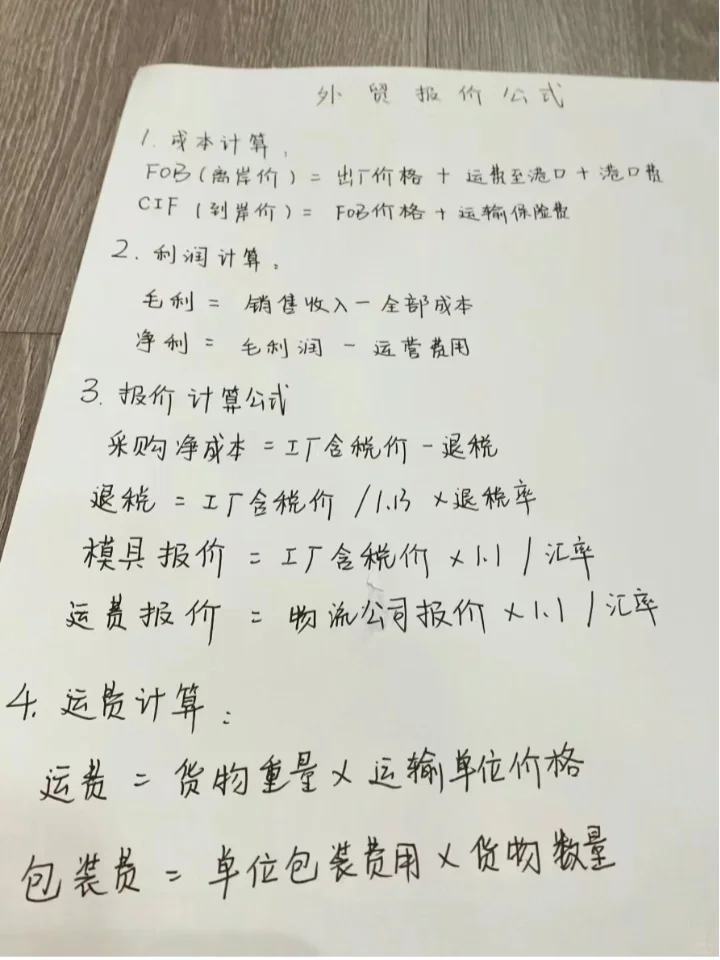 外贸报价公式
1. 成本计算:
FOB(离岸价) = 出厂价格 + 运费至港口 + 港口费
CIF (到岸价) = FOB价格 + 运输保险费
2. 利润计算:
毛利 = 销售收入 - 全部成本
净利 = 毛利润 - 运营费用
3. 报价计算公式
采购净成本 = 工厂含税价 - 退税
退税 = 工厂含税价 / 1.13 × 退税率
模具报价 = 工厂含税价 × 1.1 / 汇率
运费报价 = 物流公司报价 × 1.1 / 汇率
4. 运费计算:
运费 = 货物重量 × 运输单位价格
包装费 = 单位包装费用 × 货物数量